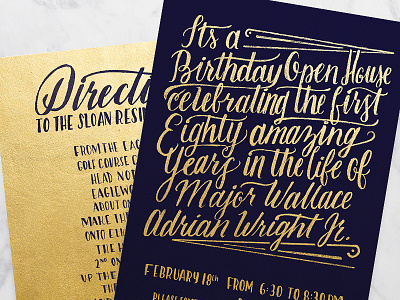 Directo
TO THE SLOAN RESI
FROM THE EAG
GOLF COURSE C
HEAD NOT
EAGLEWO
ABOUT ON
MAKE TH
ONTO ELL
THE H
2ND ON
UP THE
THE
Its a
Birthday Open House
celebrating the first
Eighty amazing
Years in the life of
Major Wallace
Adrian Wright Jr.
FEBRUARY 18th FROM 6:30 TO 8:30P